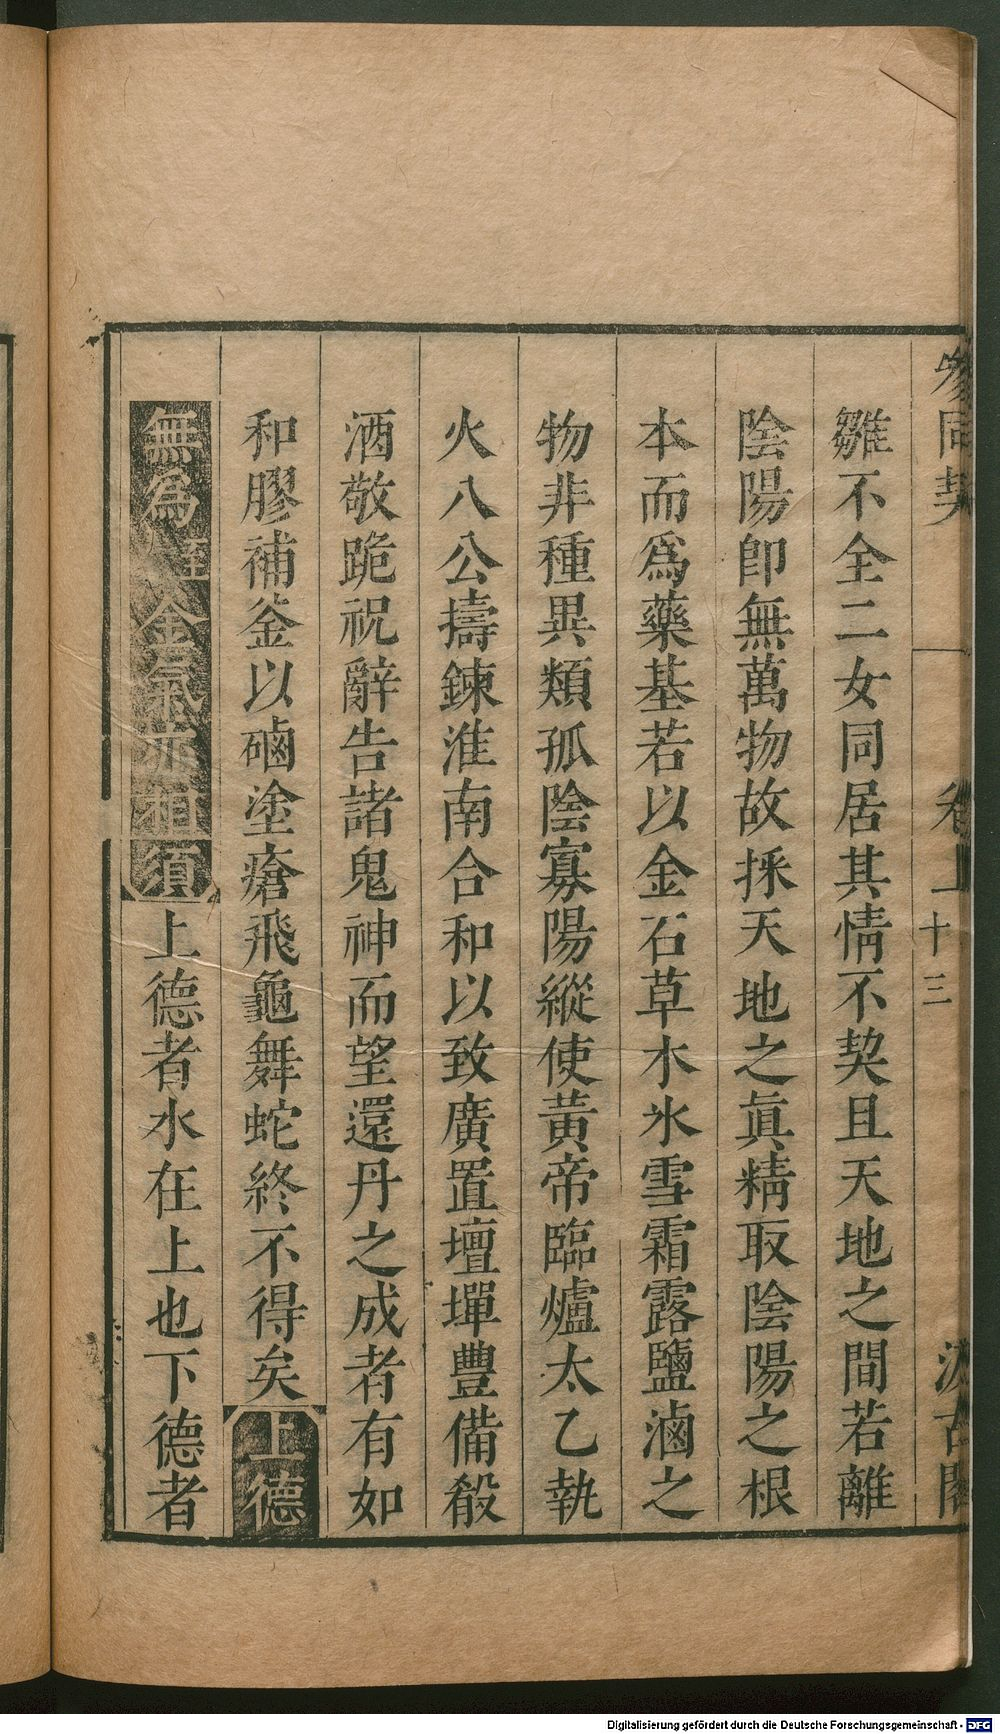 參同契 卷上 十三 汲古閣
雛不全二女同居其情不契且天地之間若離
陰陽即無萬物故採天地之眞精取陰陽之根
本而爲藥基若以金石草木氷雪霜露鹽滷之
物非種異類孤陰寡陽縱使黃帝臨爐太乙執
火八公擣鍊淮南合和以致廣置壇墠豐備殽
酒敬跪祝辭告諸鬼神而望還丹之成者有如
和膠補釜以磠塗瘡飛龜舞蛇終不得矣上德
無爲至金氣亦相須上德者水在上也下德者
Digitalisierung gefördert durch die Deutsche Forschungsgemeinschaft - DFG